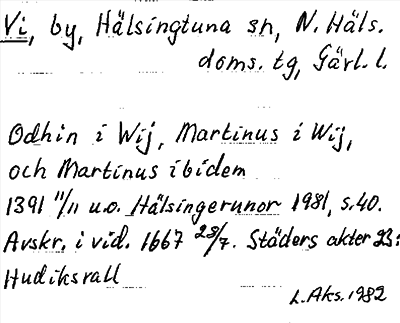 Vi, by, Hälsingtuna sn, N. Häls.
doms. tg, Gävl. l.
Odhin i Wij, Martinus i Wij,
och Martinus ibidem
1391 11/11 u.o. Hälsingerunor 1981, s. 40.
Avskr. i vid. 1667 28/7. Städers akter 23:
Hudiksvall
L. Aks. 1982